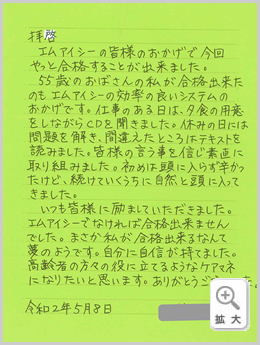 拝啓
エムアイシーの皆様のおかげで今回
やっと合格することが出来ました。
55歳のおばさんの私が合格出来た
のもエムアイシーの効率の良いシステムの
おかげです。仕事のある日は、夕食の用意
をしながらCDを聞きました。休みの日には
問題を解き、間違えたところはテキストを
読みました。皆様の言う事を信じ素直に
取り組みました。初めは頭に入らず辛かっ
たけど、続けていくうちに自然と頭に入って
きました。
いつも皆様に励ましていただきました。
エムアイシーでなければ合格出来ません
でした。まさか私が合格出来るなんて
夢のようです。自分に自信が持てました。
高齢者の方々の役に立てるようなケアマネ
になりたいと思います。ありがとうござ した。
令和2年5月8日
拡大